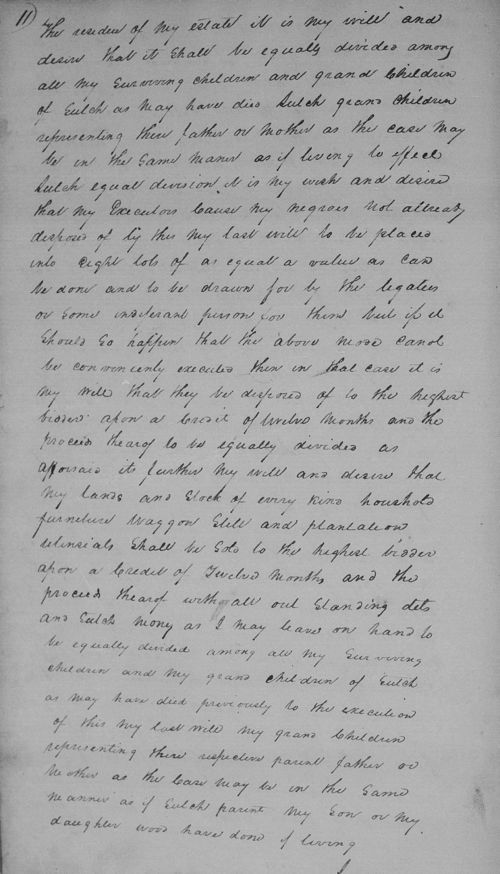 11)
The residue of my estate it is my will and
desire that it Shall be equally divided among
all my Surviving children and grand Children
of Sutch as may have died Sutch grand children
representing there father or mother as the case may
be in the same maner as if living to effect
Sutch equal division it is my wish and desire
that my Executors Cause my negroes not allready
disposed of by this my last will to be placed
into eight lots of as equal a value as can
be done and to be drawn for by the legatees
or Some indiferant person for them but if it
Should So happen that the above mode canot
be conveniently executed then in that case it is
my will that they be disposed of to the highest
bidder apon a Credit of twelve months and the
proceeds thearof to be equally divided as
afforsaid its further my will and desire that
my lands and Stock of every kind houshold
furneture waggon Still and plantation
utensials Shall be Sold to the highest bidder
apon a Credit of Twelve months and the
proceeds thearof with all out Standing dets
and Sutch mony as I may leave on hand to
be equally divided among all my Surviving
children and my grand children of Sutch
as may have died previously to the execution
of this my last will my grand Children
representing there respective parent father or
mother as the Case may be in the Same
manner as if Sutch parent my Son or my
daughter wood have done if living